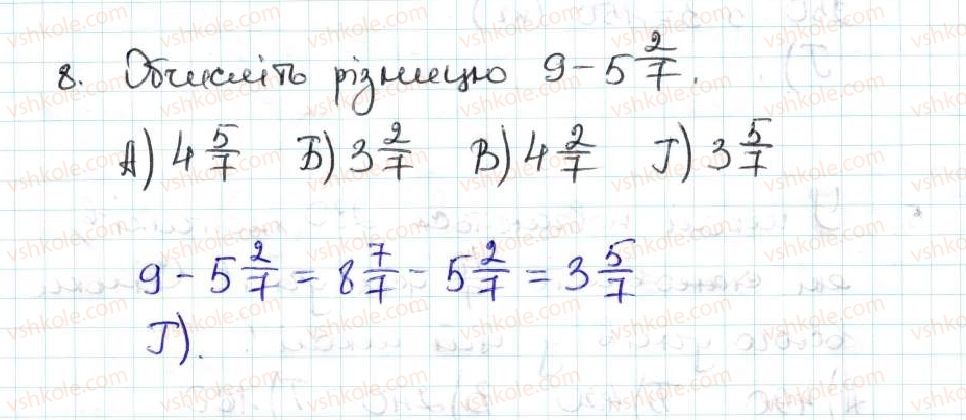 8. Обчисліть різницю 9 - 5 2/7.
А) 4 5/7 Б) 3 2/7 В) 4 2/7 Г) 3 5/7
9 - 5 2/7 = 8 7/7 - 5 2/7 = 3 5/7
Г).
vshkole.com